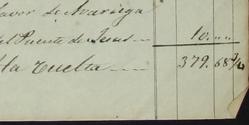 favor de Avariega
del Puente de Jesus ---- 10. ----
A la Vuelta ---- 379. 68 3/4